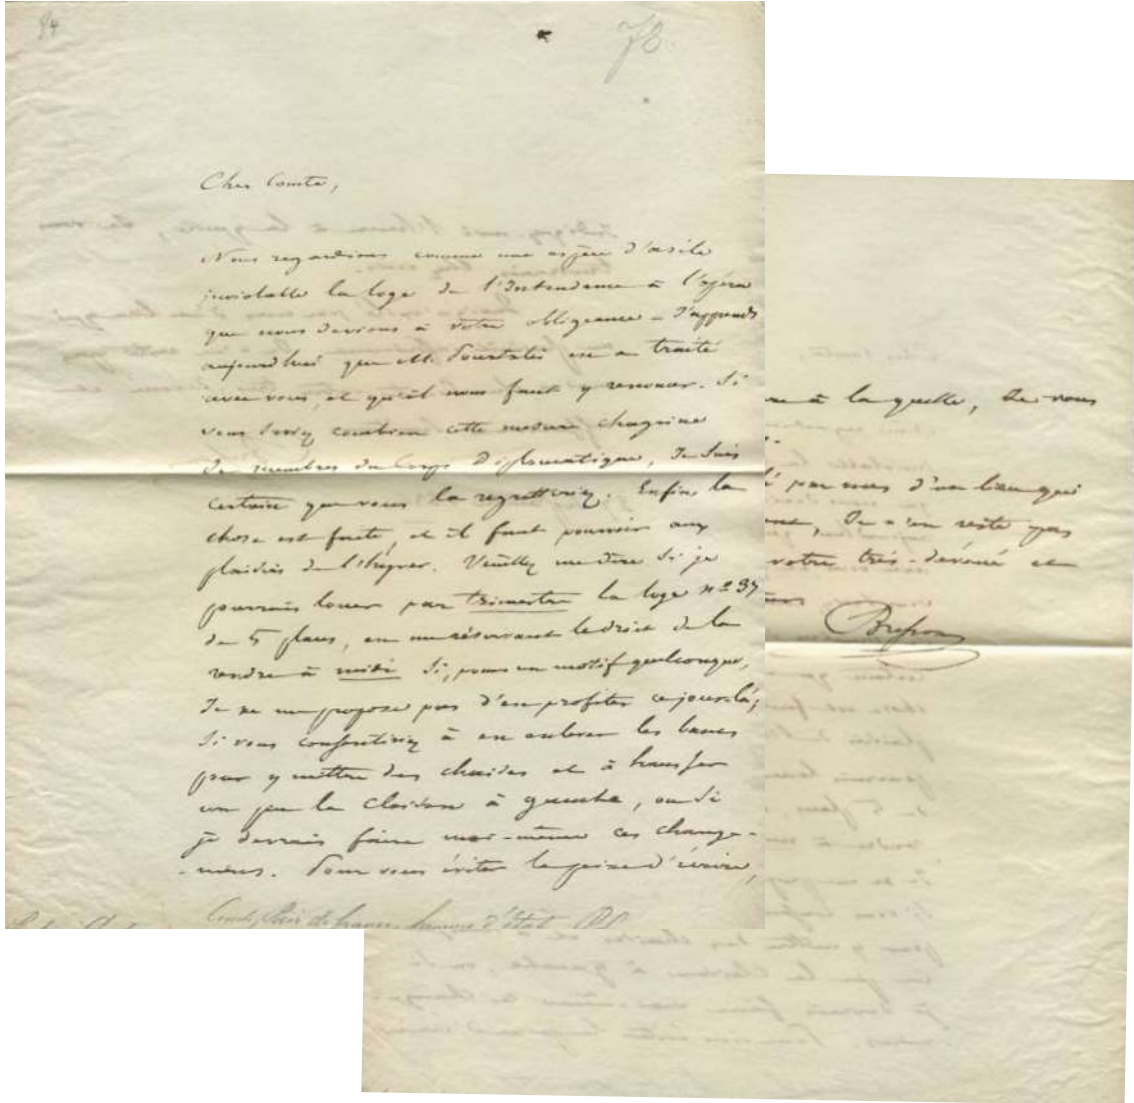 84
78.
Cher Comte,
Nous regardions comme une espèce d'asile
inviolable la loge de l'Intendance à l'opéra
que nous devions à votre obligeance – J'apprends
aujourd'hui que M. Pourtalès en a traité
avec vous, et qu'il nous faut y renoncer. Si
vous saviez combien cette mesure chagrine
de membres du Corps Diplomatique, Je suis
certain que vous la regretteriez. Enfin, la
chose est faite, et il faut pourvoir aux
plaisirs de l'hiver. Veuillez me dire si je
pourrais louer par trimestre la loge nº 37
de 5 places, en me réservant le droit de la
rendre à midi si, pour un motif quelconque,
Je ne me propose pas d'en profiter ce jour-là;
si vous consentiriez à en enlever les bancs
pour y mettre des chaises et à hausser
un peu la cloison à gauche, ou si
je devrais faire moi-même ces change-
-mens. Pour vous éviter la peine d'écrire,
Comte, Pair de france, homme d'état
à la quelle, Je vous
par mes d'un lieu qui
Je n'en reste pas
votre très-dévoué et
Bresson